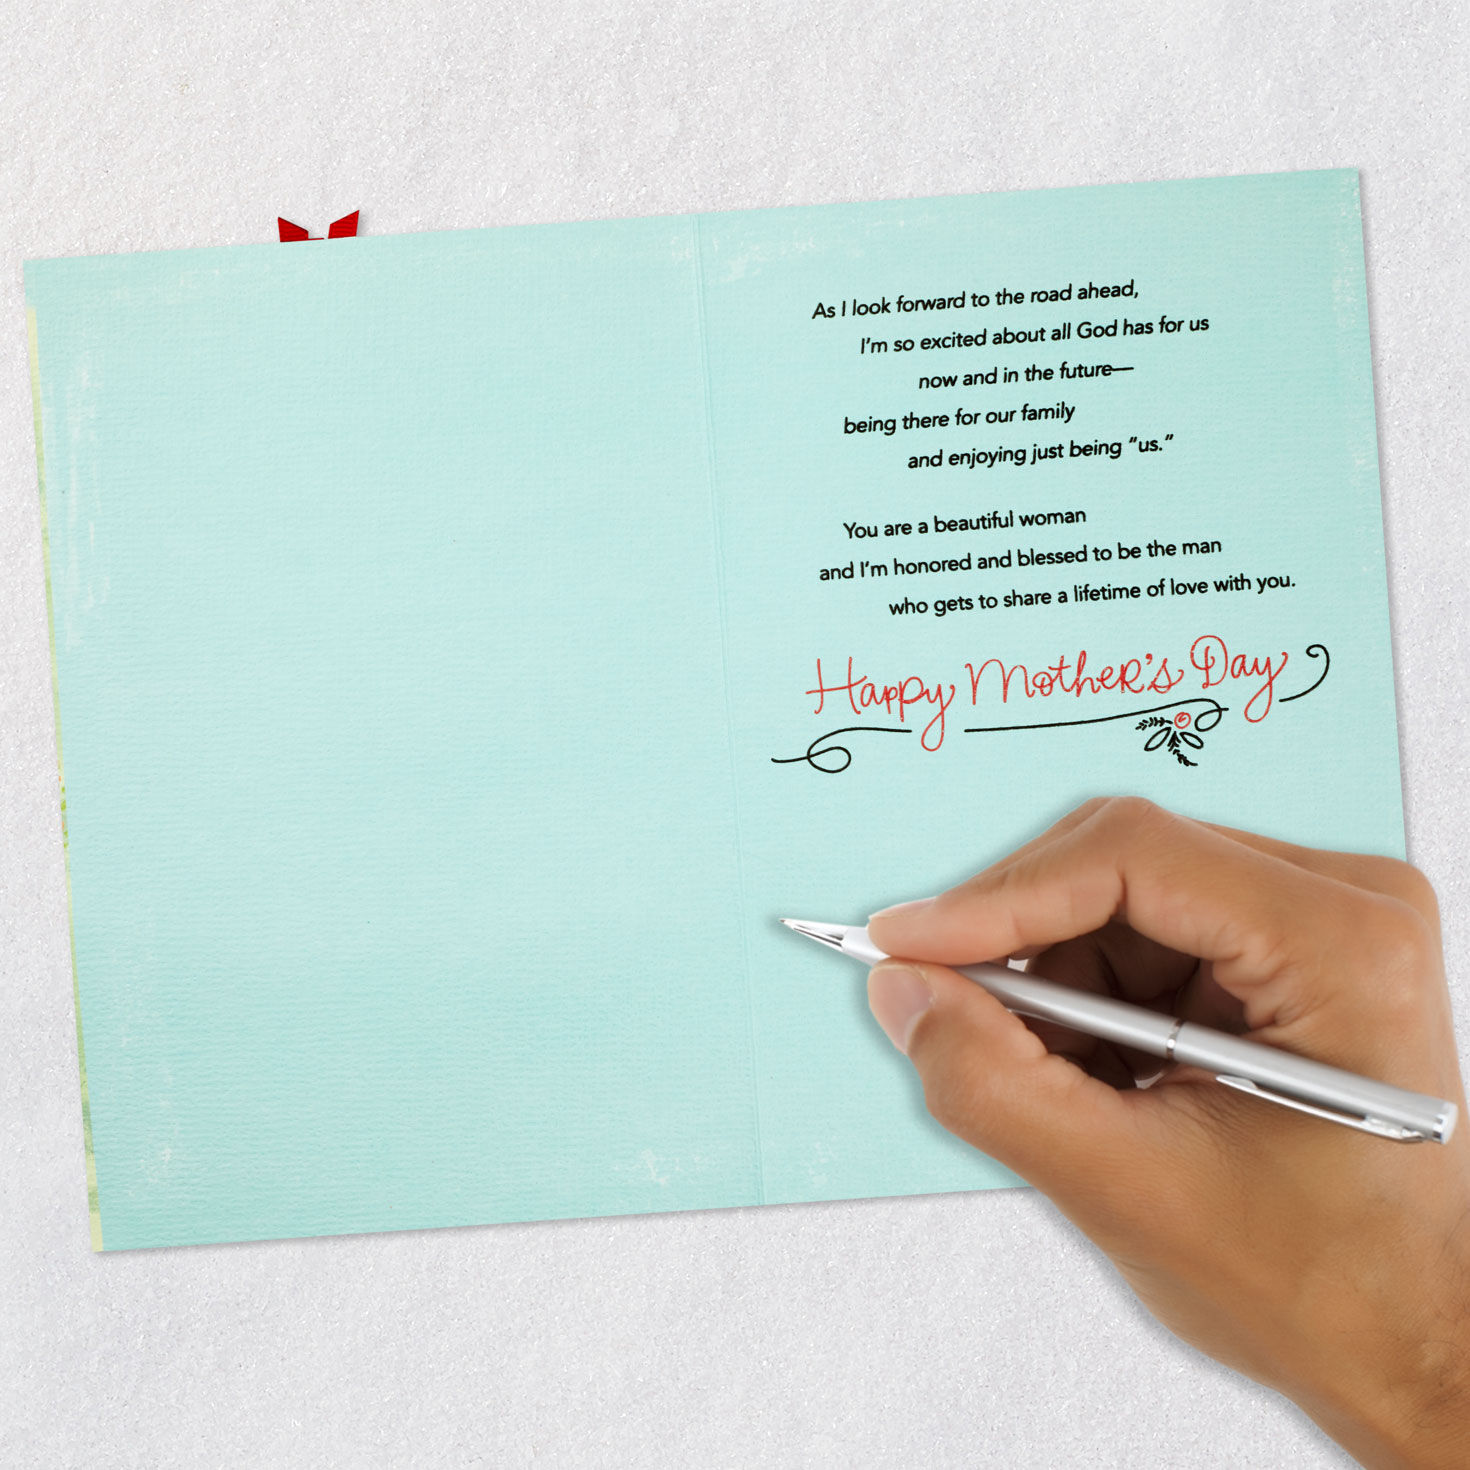 As I look forward to the road ahead,
I'm so excited about all God has for us
now and in the future—
being there for our family
and enjoying just being “us.”
You are a beautiful woman
and I'm honored and blessed to be the man
who gets to share a lifetime of love with you.
Happy Mother's Day